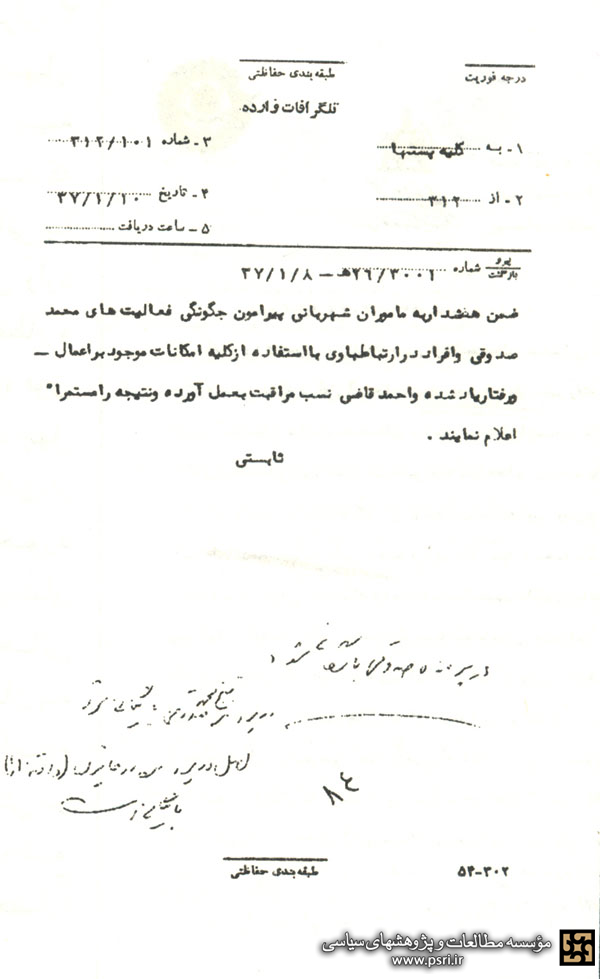 درجه فوریت
طبقه‌بندی حفاظتی
تلگرافات وارده
۱ـ به کلیه پستها
۳ـ شماره ۳۱۲/۱۰۱
۲ـ از ۳۱۲
۴ـ تاریخ ۳۷/۱/۱۰
۵ـ ساعت دریافت
پیرو
بازگشت
شماره ۲۶/۳۰۰۱ه‍ ـ ۳۷/۱/۸
ضمن هشدار به ماموران شهربانی پیرامون چگونگی فعالیت های محمد
صدوقی وافراد در ارتباط باوی با استفاده از کلیه امکانات موجود بر اعمال ـ
ورفتار یاد شده واحمد قاضی نسب مراقبت بعمل آورده ونتیجه را مستمرا"
اعلام نمایند .
ثابستی
در پرونده صدوقی بایگانی شود
۸۴
طبقه‌بندی حفاظتی
۵۴-۳۰۲
مؤسسه مطالعات و پژوهشهای سیاسی
www.psri.ir